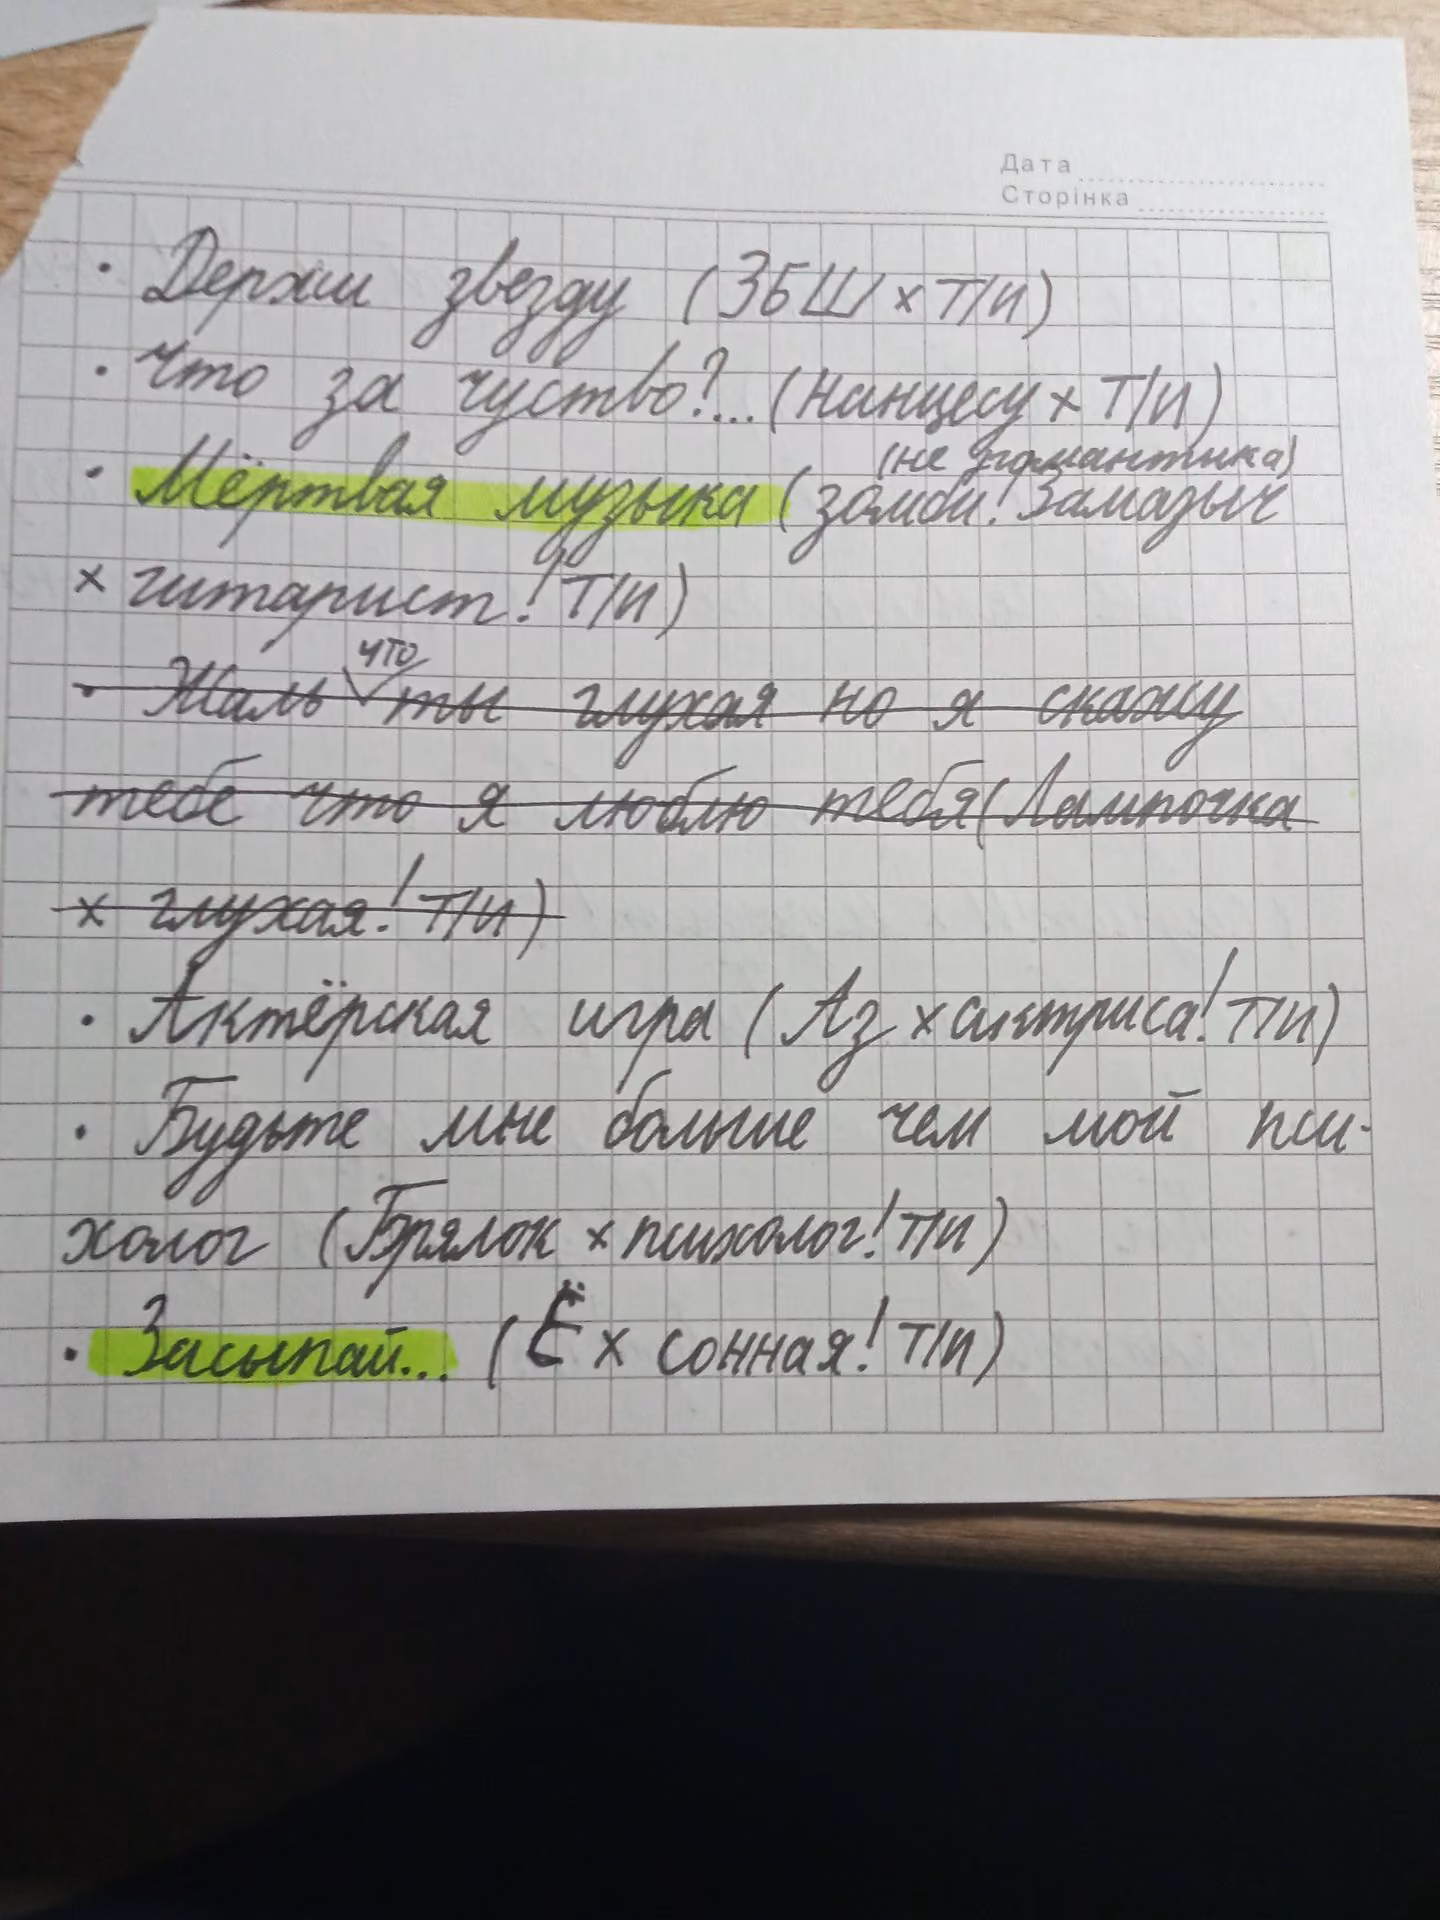 Дата
Сторінка
· Держи звезду (ЗБШ x Т/и)
· Что за чуство?... (Нанцесу x Т/и)
(не романтика)
· Мёртвая музыка (зомби! Замазыч
x гитарист! Т/и)
что
· Жаль ты глухая но я скажу
тебе что я люблю тебя (Лампочка
x глухая! Т/и)
· Актёрская игра (Аз x актриса! Т/и)
· Будьте мне больше чем мой пси-
холог (Брялок x психолог! Т/и)
· Засыпай... (Ё x сонная! Т/и)